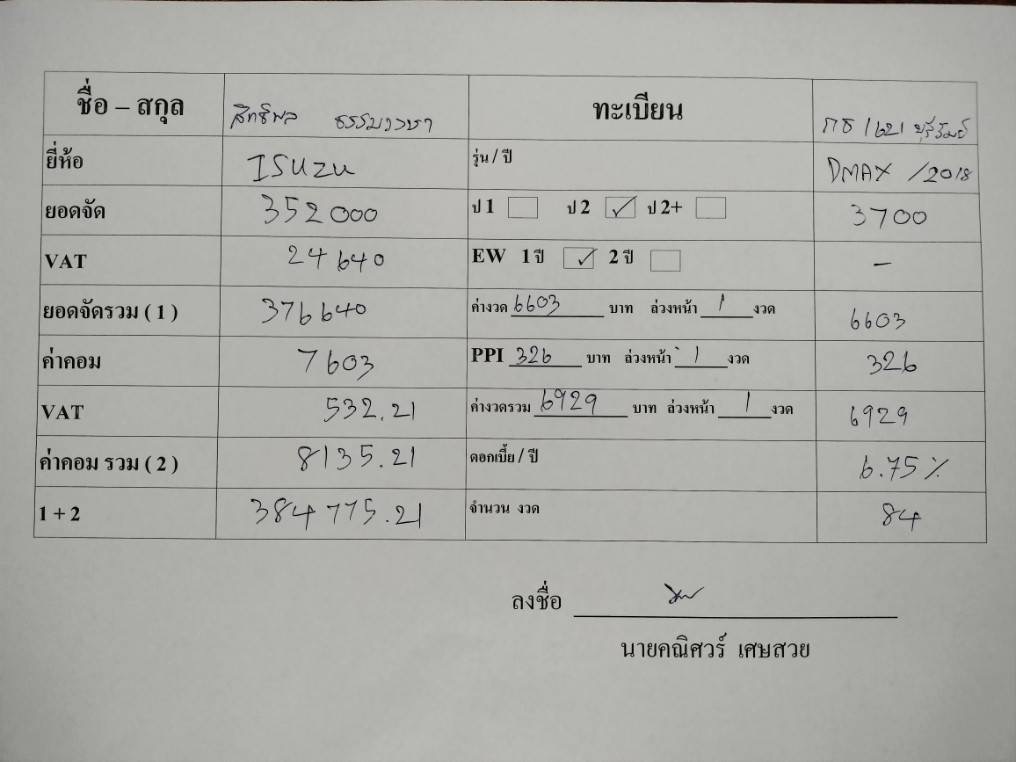 ชื่อ – สกุล สิทธิพล ธรรมวงษา ทะเบียน 1621 บุรีรัมย์
ยี่ห้อ ISUZU รุ่น / ปี DMAX / 2018
ยอดจัด 352000 ป 1 ป 2 ✓ ป 2+ 3700
VAT 24640 EW 1 ปี ✓ 2 ปี –
ยอดจัดรวม ( 1 ) 376640 ค่างวด 6603 บาท ล่วงหน้า 1 งวด 6603
ค่าคอม 7603 PPI 326 บาท ล่วงหน้า 1 งวด 326
VAT 532.21 ค่างวดรวม 6929 บาท ล่วงหน้า 1 งวด 6929
ค่าคอม รวม ( 2 ) 8135.21 ดอกเบี้ย / ปี 6.75 %
1 + 2 384775.21 จำนวน งวด 84
ลงชื่อ
นายคณิศวร์ เศษสวย